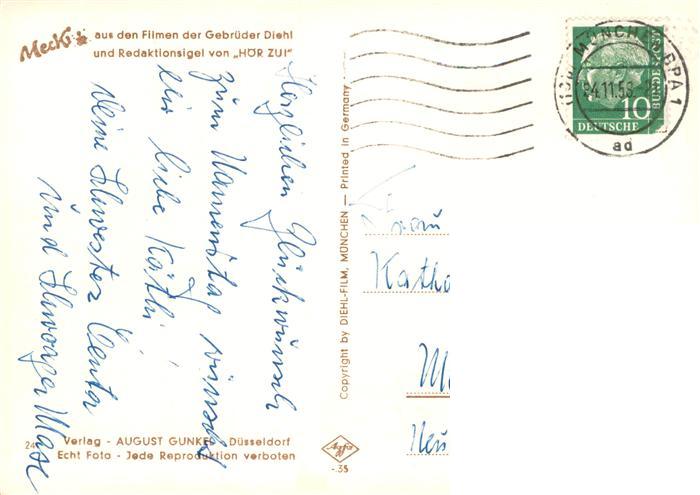 Mecki
aus den Filmen der Gebrüder Diehl
und Redaktionsigel von „HÖR ZU!"
Herzlichen Glückwunsch
zum Namenstag wünscht
Dir liebe Käthi
Deine Schwester Centa
und Schwager Maxe
24
Verlag - AUGUST GUNKEL - Düsseldorf
Echt Foto - Jede Reproduktion verboten
Copyright by DIEHL-FILM, MÜNCHEN — Printed in Germany
Agfa
-.35
MÜNCHEN BPA 1
24.11.56
ad
10
DEUTSCHE
BUNDESPOST
Frau